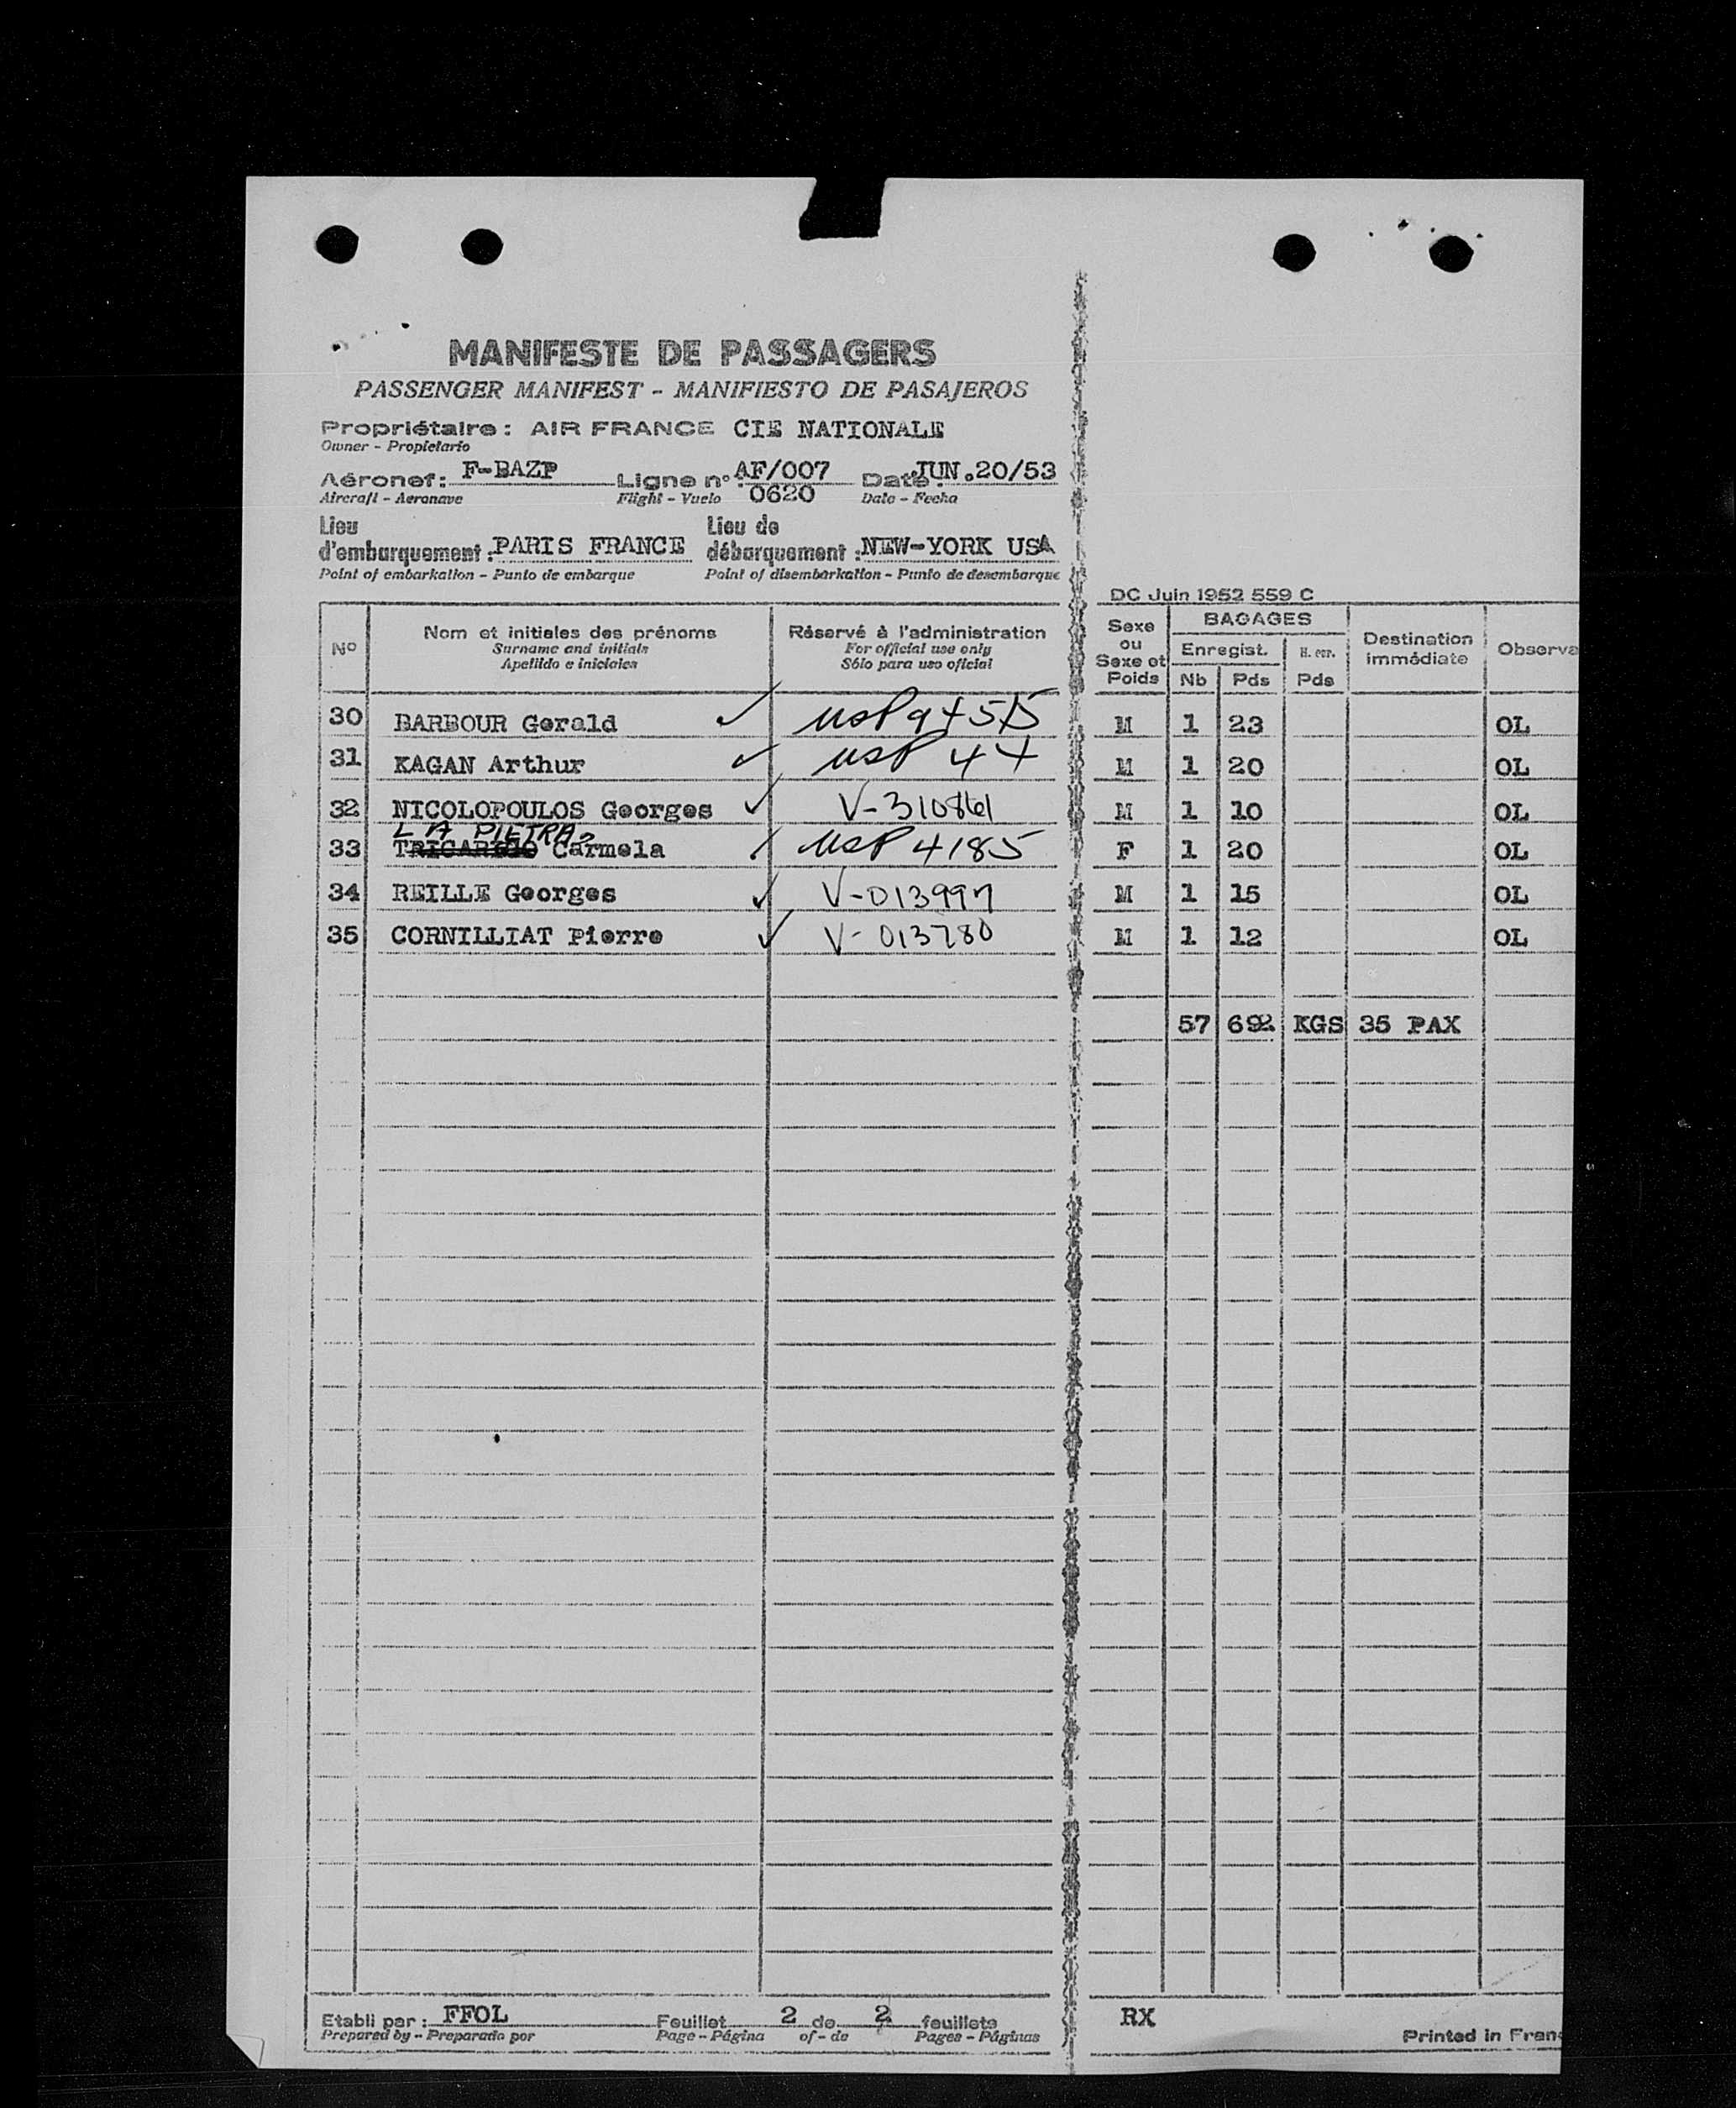 MANIFESTE DE PASSAGERS
PASSENGER MANIFEST - MANIFIESTO DE PASAJEROS
Propriétaire : AIR FRANCE CIE NATIONALE
Owner - Propietario
Aéronef : F-BAZP Ligne n° : AF/007 Date : JUN.20/53
Aircraft - Aeronave Flight - Vuelo 0620 Date - Fecha
Lieu d'embarquement : PARIS FRANCE Lieu de débarquement : NEW-YORK USA
Point of embarkation - Punto de embarque Point of disembarkation - Punto de desembarque
DC Juin 1952 559 C
N° Nom et initiales des prénoms Réservé à l'administration Sexe ou Sexe et Poids BAGAGES Enregist. Nb Pds Pds Destination immédiate Observa
Surname and initials For official use only
Apellido e iniciales Sólo para uso oficial
30 BARBOUR Gerald ✓ USP M 1 23 OL
31 KAGAN Arthur ✓ USP 44 M 1 20 OL
32 NICOLOPOULOS Georges ✓ V-310861 M 1 10 OL
LA PIETRA
33 Carmela ✓ USP 4185 F 1 20 OL
34 REILLE Georges ✓ V-013997 M 1 15 OL
35 CORNILLIAT Pierre ✓ V-013780 M 1 12 OL
57 692 KGS 35 PAX
Etabli par : FFOL Feuillet 2 de 2 feuillets RX
Prepared by - Preparado por Page - Página of - de Pages - Páginas Printed in Fran